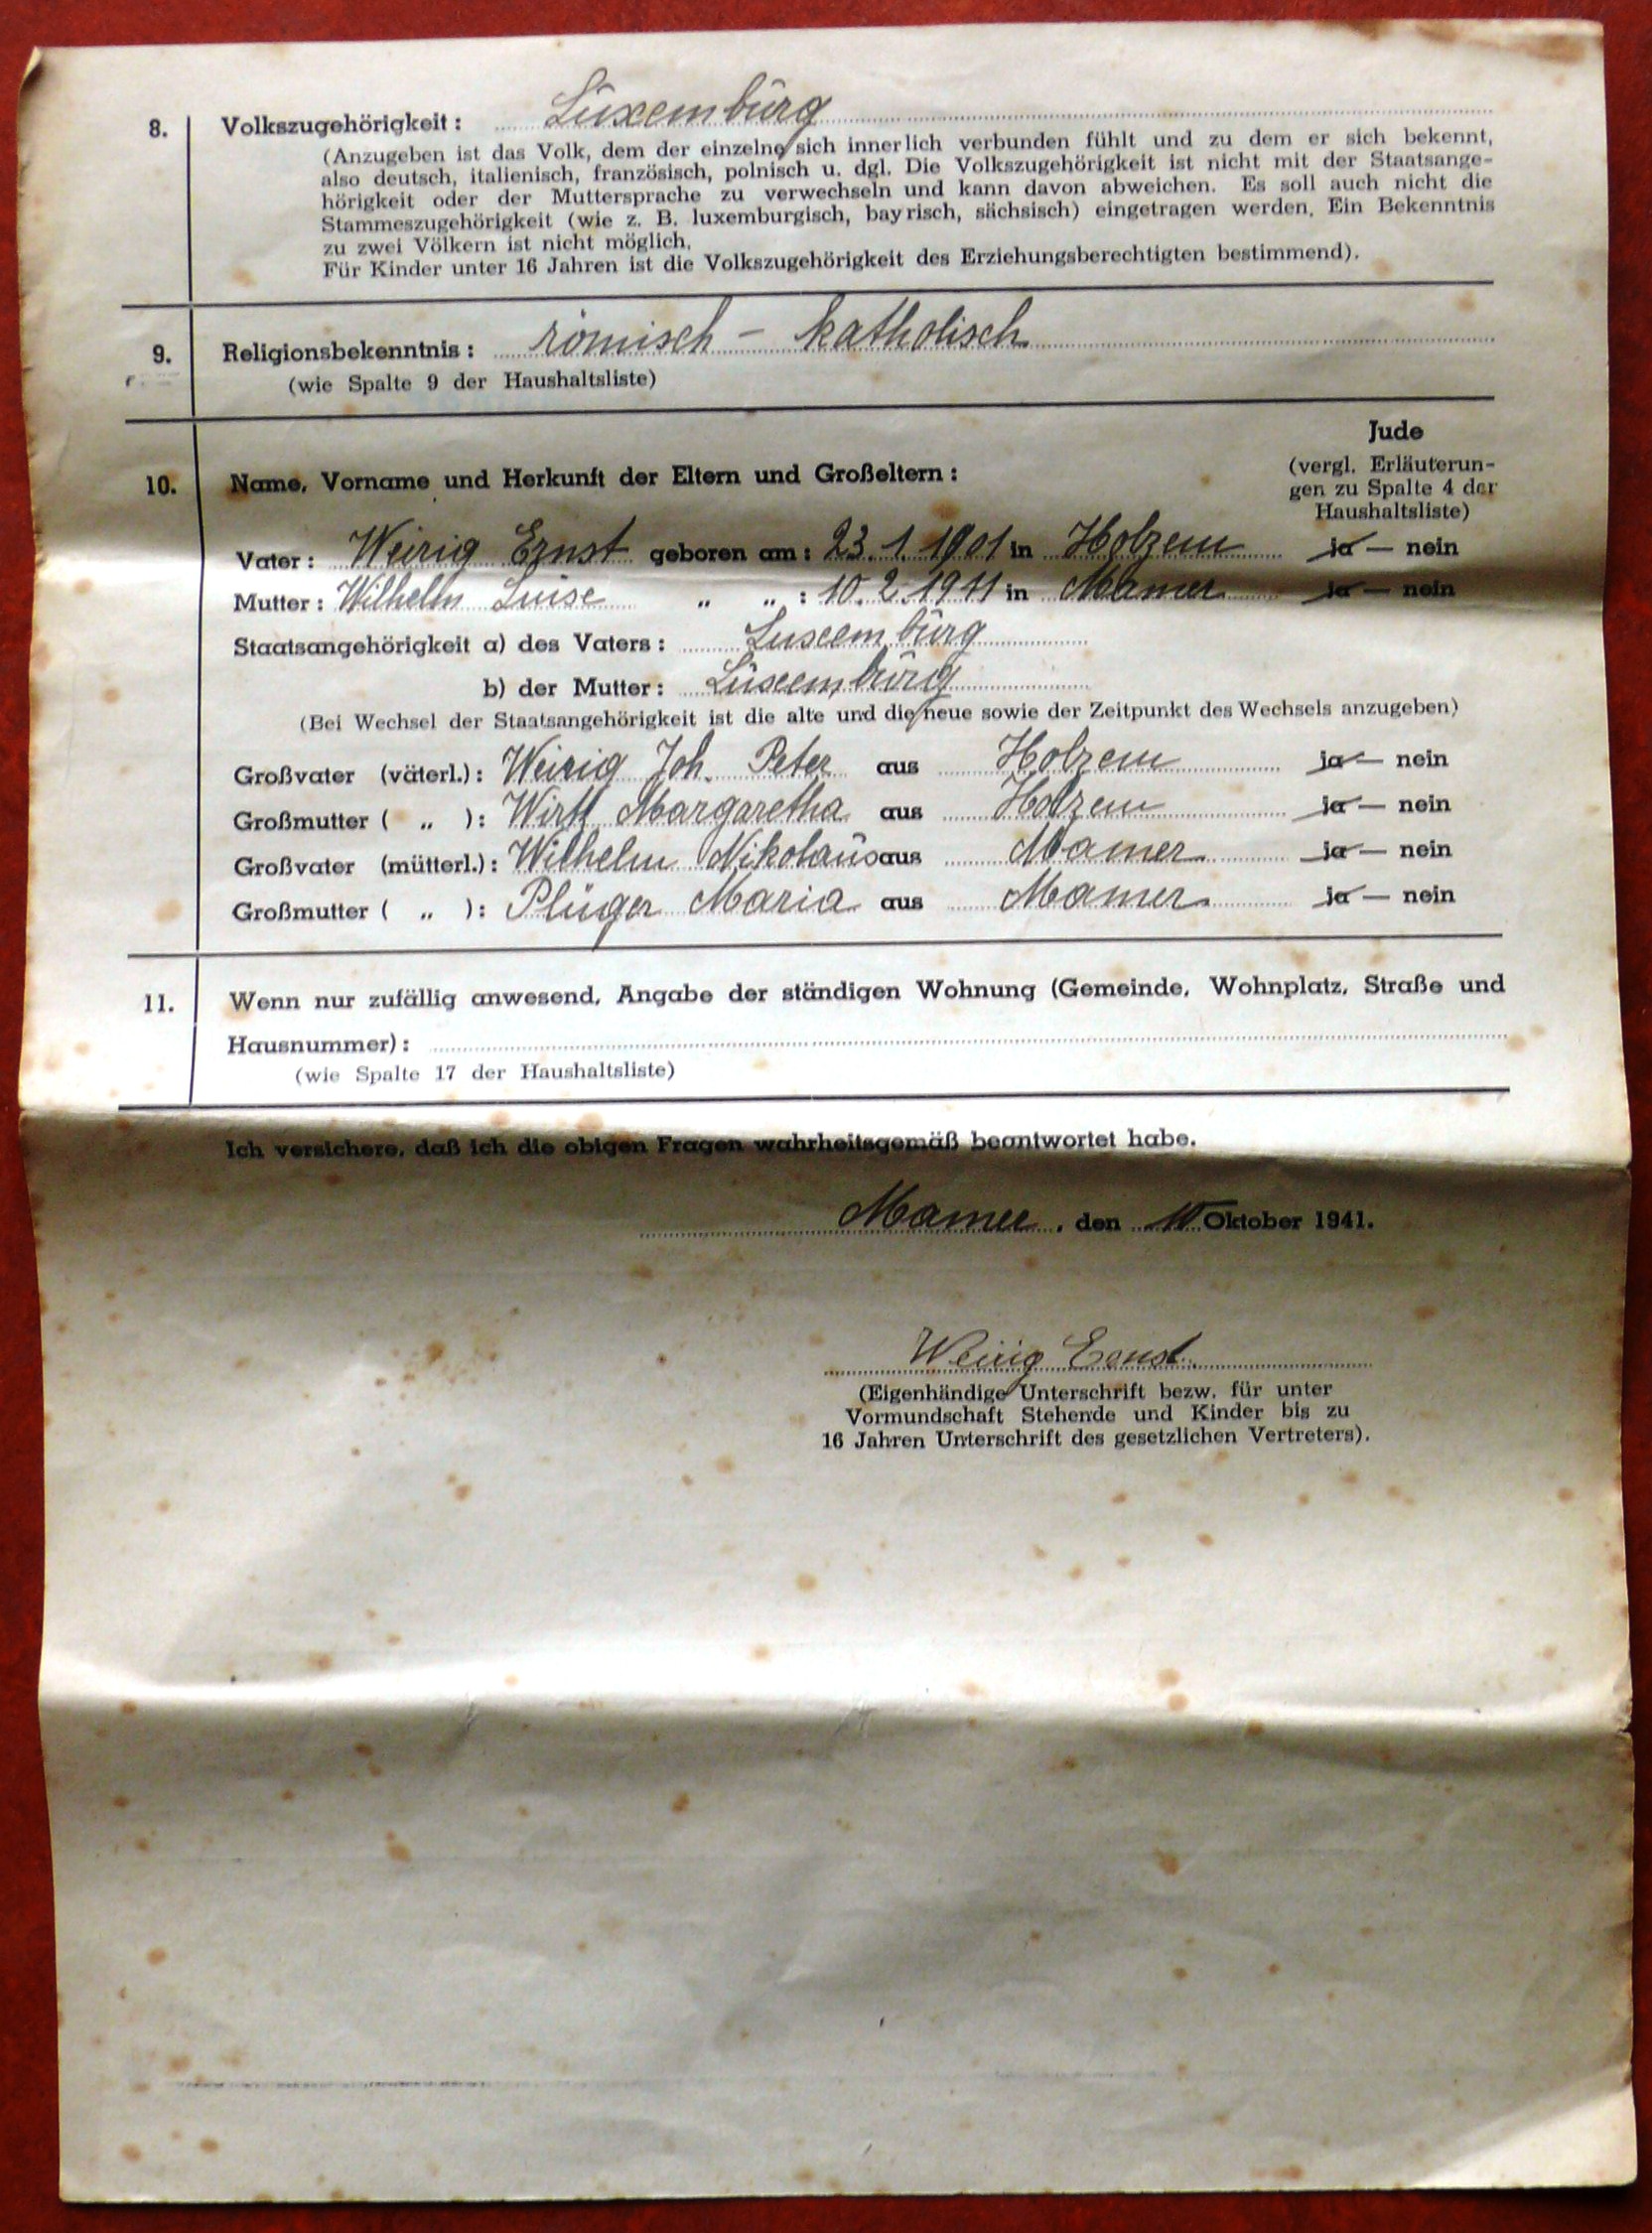 8. Volkszugehörigkeit: Lŭxembŭrg
(Anzugeben ist das Volk, dem der einzelne sich innerlich verbunden fühlt und zu dem er sich bekennt,
also deutsch, italienisch, französisch, polnisch u. dgl. Die Volkszugehörigkeit ist nicht mit der Staatsange-
hörigkeit oder der Muttersprache zu verwechseln und kann davon abweichen. Es soll auch nicht die
Stammeszugehörigkeit (wie z. B. luxemburgisch, bayrisch, sächsisch) eingetragen werden. Ein Bekenntnis
zu zwei Völkern ist nicht möglich.
Für Kinder unter 16 Jahren ist die Volkszugehörigkeit des Erziehungsberechtigten bestimmend).
9. Religionsbekenntnis: römisch - katholisch
(wie Spalte 9 der Haushaltsliste)
Jude
(vergl. Erläuterun-
gen zu Spalte 4 der
Haushaltsliste)
10. Name, Vorname und Herkunft der Eltern und Großeltern:
Vater: Weirig Ernst geboren am: 23.1.1901 in Holzem ja — nein
Mutter: Wilhelm Luise „ „ : 10.2.1911 in Mamer ja — nein
Staatsangehörigkeit a) des Vaters: Luxembŭrg
b) der Mutter: Lŭxembŭrg
(Bei Wechsel der Staatsangehörigkeit ist die alte und die neue sowie der Zeitpunkt des Wechsels anzugeben)
Großvater (väterl.): Weirig Joh. Peter aus Holzem ja — nein
Großmutter ( „ ): Margaretha aus Holzem ja — nein
Großvater (mütterl.): Wilhelm Nikolaŭs aus Mamer ja — nein
Großmutter ( „ ): Plüger Maria aus Mamer ja — nein
11. Wenn nur zufällig anwesend, Angabe der ständigen Wohnung (Gemeinde, Wohnplatz, Straße und
Hausnummer):
(wie Spalte 17 der Haushaltsliste)
Ich versichere, daß ich die obigen Fragen wahrheitsgemäß beantwortet habe.
Mamer, den 10 Oktober 1941.
Weirig Ernst
(Eigenhändige Unterschrift bezw. für unter
Vormundschaft Stehende und Kinder bis zu
16 Jahren Unterschrift des gesetzlichen Vertreters).